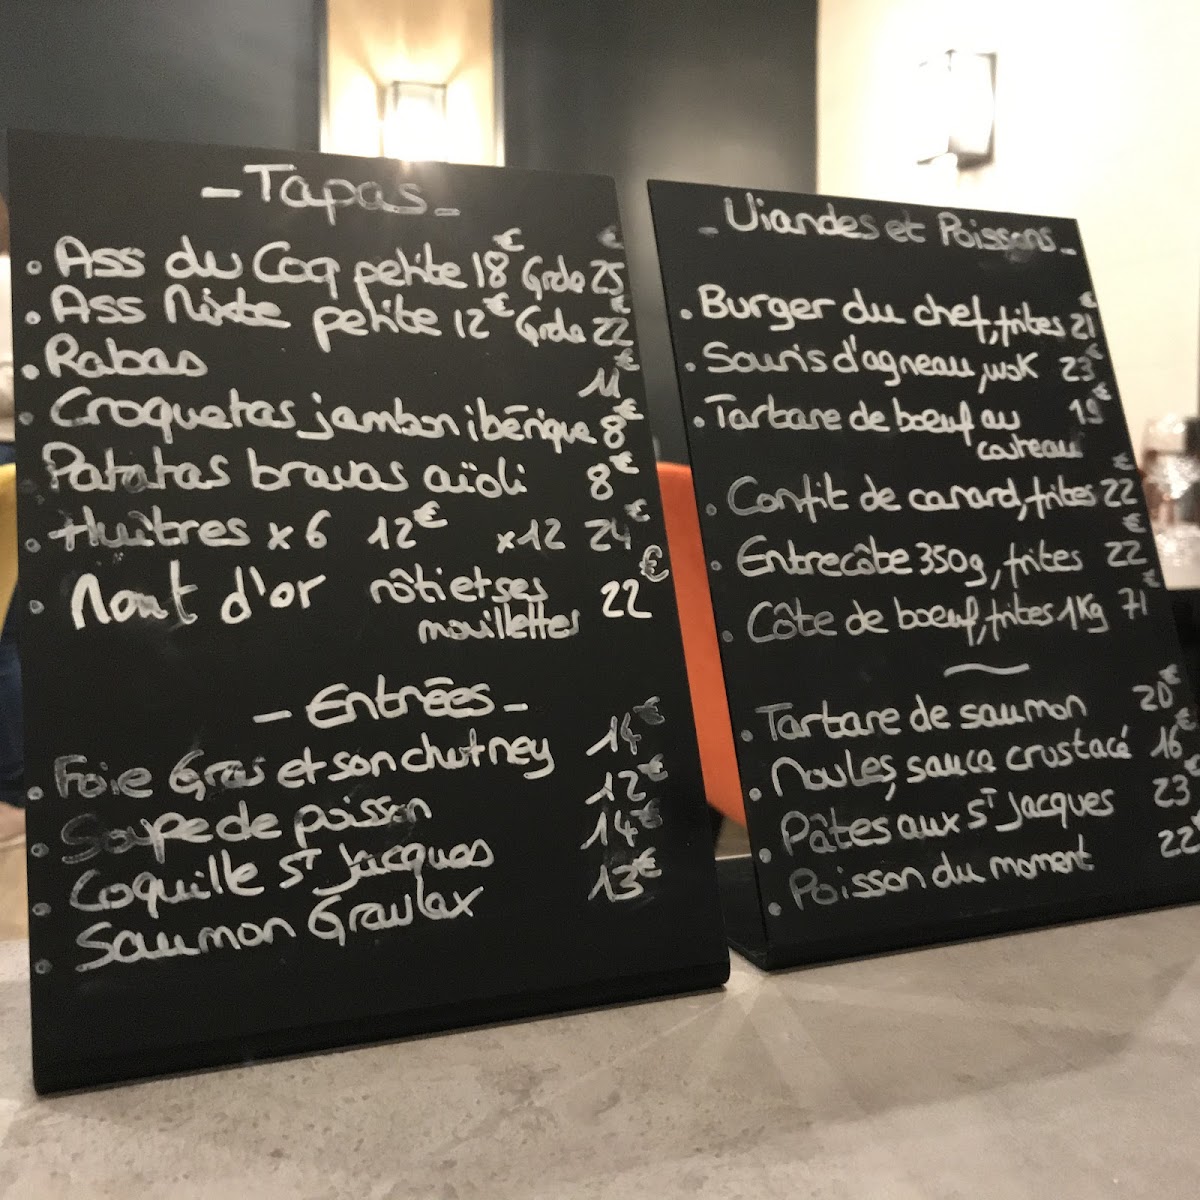 - Tapas -
. Ass du Coq petite 18€ Grde 25€
. Ass Mixte petite 12€ Grde 22€
. Rabas 11€
. Croquetas jambon ibérique 8€
Patatas bravas aïoli 8€
. Huîtres x 6 12€ x12 24€
. Mont d'or rôti et ses 22€
mouillettes
- Entrées -
. Foie Gras et son chutney 14€
. Soupe de poisson 12€
. Coquille ST Jacques 14€
. Saumon Gravlax 13€
- Viandes et Poissons -
. Burger du chef, frites 21€
. Souris d'agneau, wok 23€
. Tartare de boeuf au 19€
couteau
. Confit de canard, frites 22€
. Entrecôte 350g, frites 22€
. Côte de boeuf, frites 1Kg 71€
. Tartare de saumon 20€
. Moules, sauce crustacé 16€
. Pâtes aux ST Jacques 23€
. Poisson du moment 22€